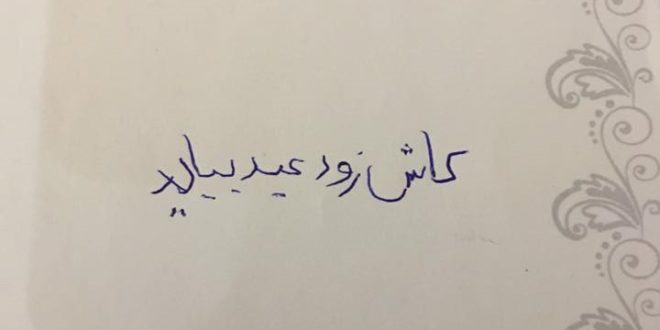 کاش زود عید بیاید